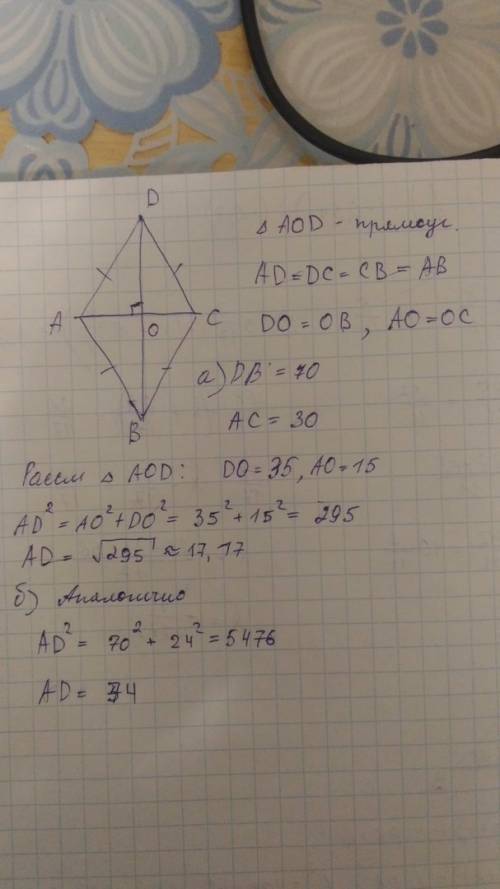 D
A
O
C
B
△ AOD - прямоуг.
AD = DC = CB = AB
DO = OB, AO = OC
а) DB = 70
AC = 30
Рассм △ AOD: DO = 35, AO = 15
AD² = AO² + DO² = 35² + 15² = 295
AD = √295 ≈ 17,17
б) Аналогично
AD² = 70² + 24² = 5476
AD = 74